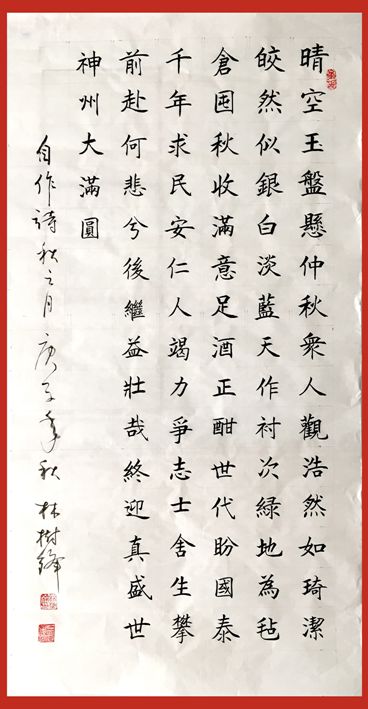 晴空玉盤懸仲秋衆人觀浩然如琦潔
皎然似銀白淡藍天作衬次緑地為毡
倉囤秋收滿意足酒正酣世代盼國泰
千年求民安仁人竭力爭志士舍生攀
前赴何悲兮後繼益壯哉終迎真盛世
神州大滿圓
自作詩秋之月庚子年秋林樹鋒